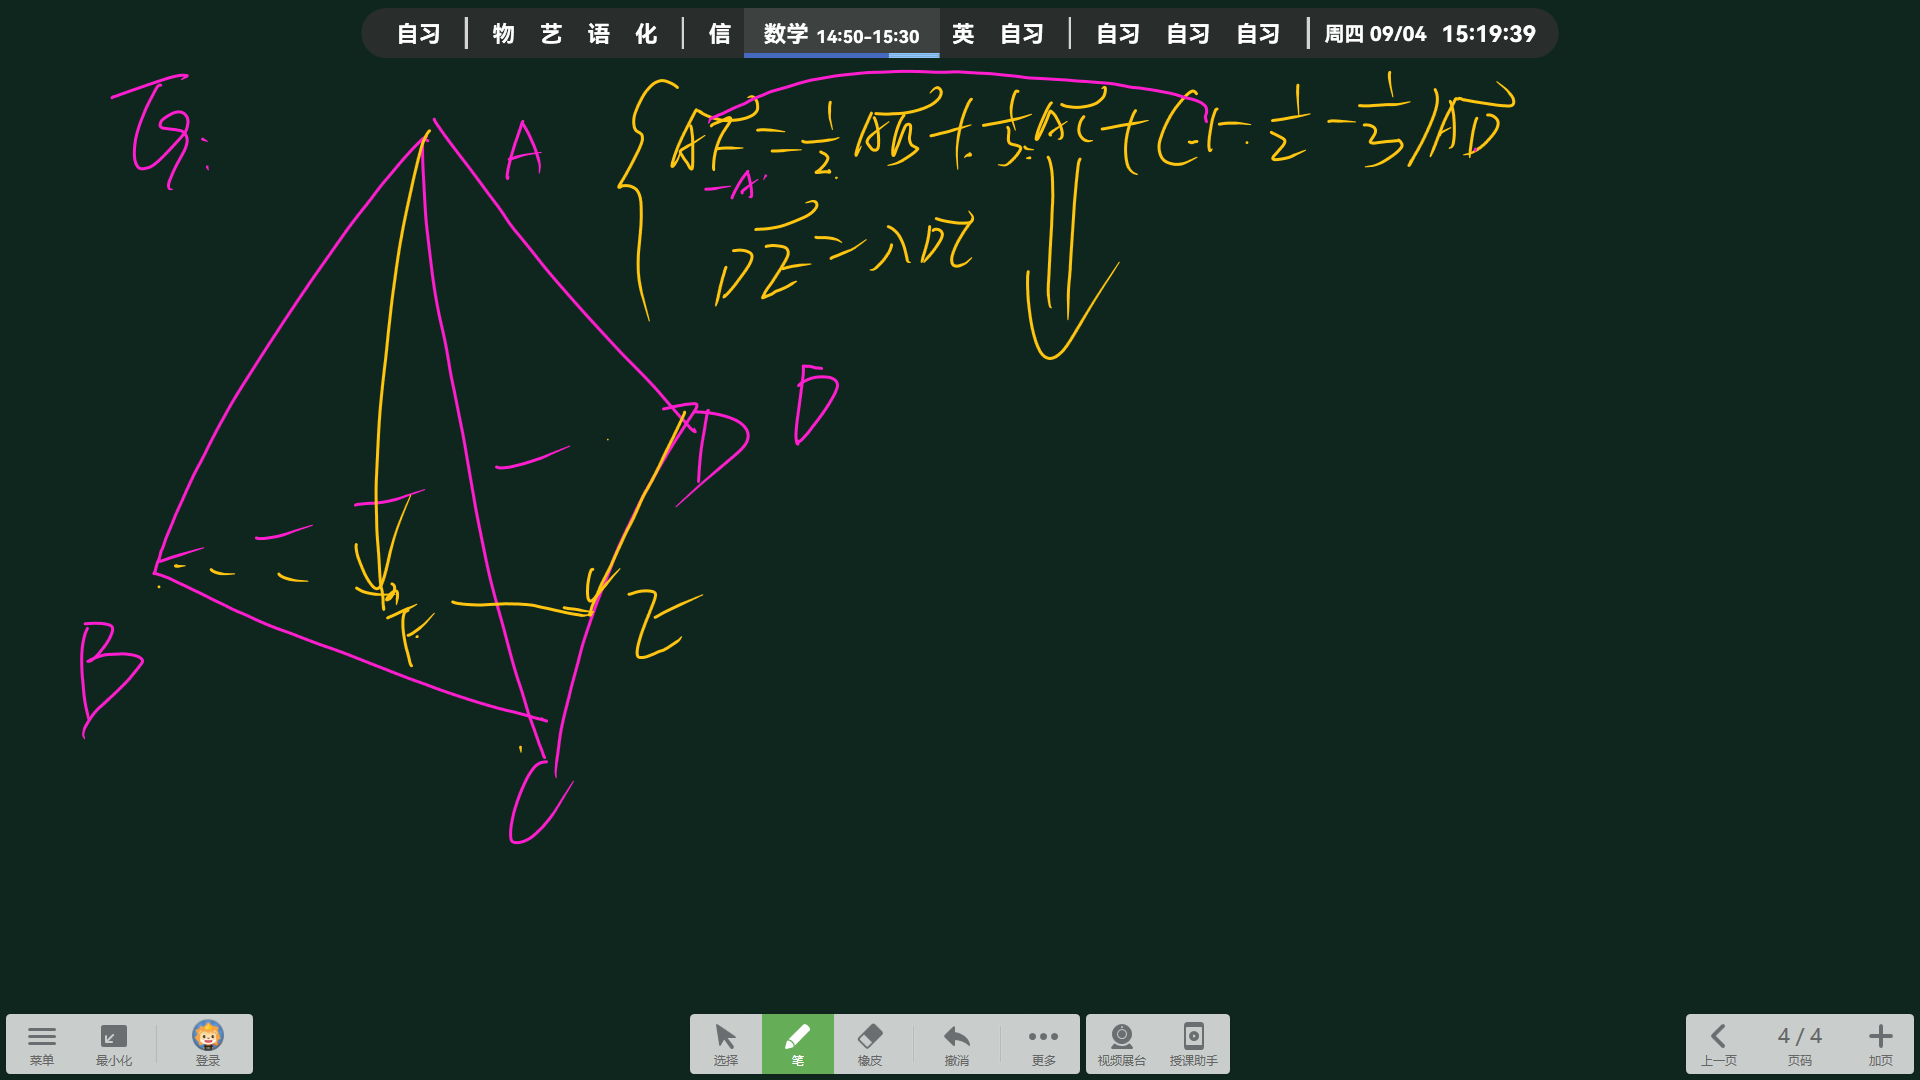 自习 | 物 艺 语 化 | 信 数学 14:50-15:30 英 自习 | 自习 自习 自习 | 周四 09/04 15:19:39
AF = 1/2 AB + 1/3 AC + (1 - 1/2 - 1/3) AD
-A
DE = λDC
A
D
D
F
E
B
C
菜单 最小化 登录 选择 笔 橡皮 撤消 更多 视频展台 授课助手 上一页 4 / 4 页码 加页